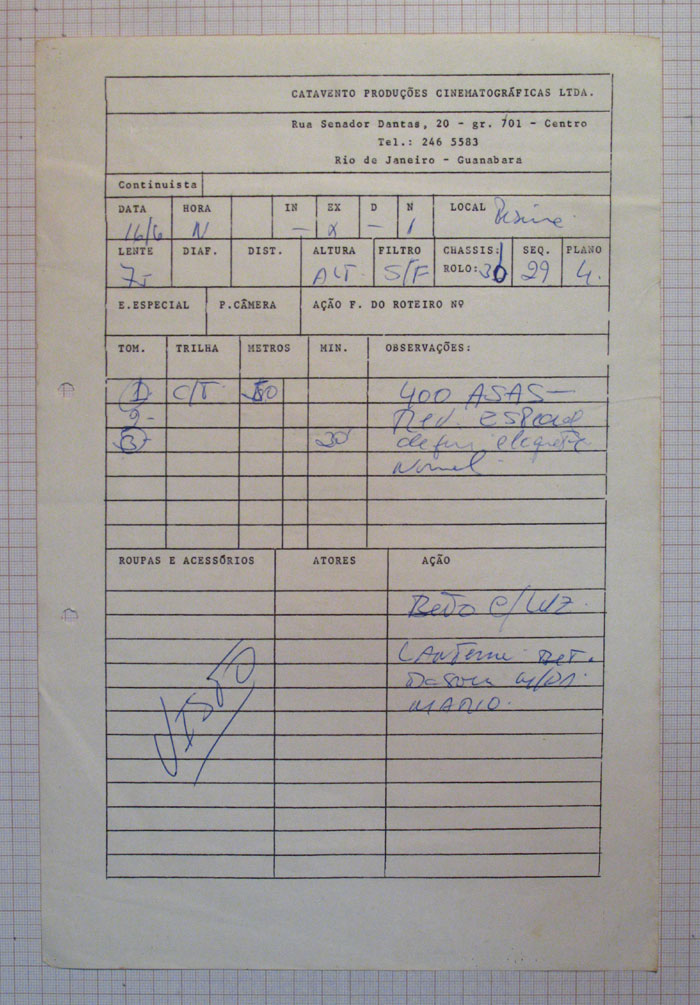 CATAVENTO PRODUÇÕES CINEMATOGRÁFICAS LTDA.
Rua Senador Dantas, 20 - gr. 701 - Centro
Tel.: 246 5583
Rio de Janeiro - Guanabara
Continuista
DATA HORA IN EX D N LOCAL
16/6 N - x - /
LENTE DIAF. DIST. ALTURA FILTRO CHASSIS: SEQ. PLANO
ALT S/F ROLO: 30 29 4.
E.ESPECIAL P.CÂMERA AÇÃO F. DO ROTEIRO Nº
TOM. TRILHA METROS MIN. OBSERVAÇÕES:
1- C/T. 400 ASAS-
2- Rev. ESPECIAL
3- 20
Normal
ROUPAS E ACESSÓRIOS ATORES AÇÃO
BETO C/LUZ.
LANTERNA
MARIO.
VISTO